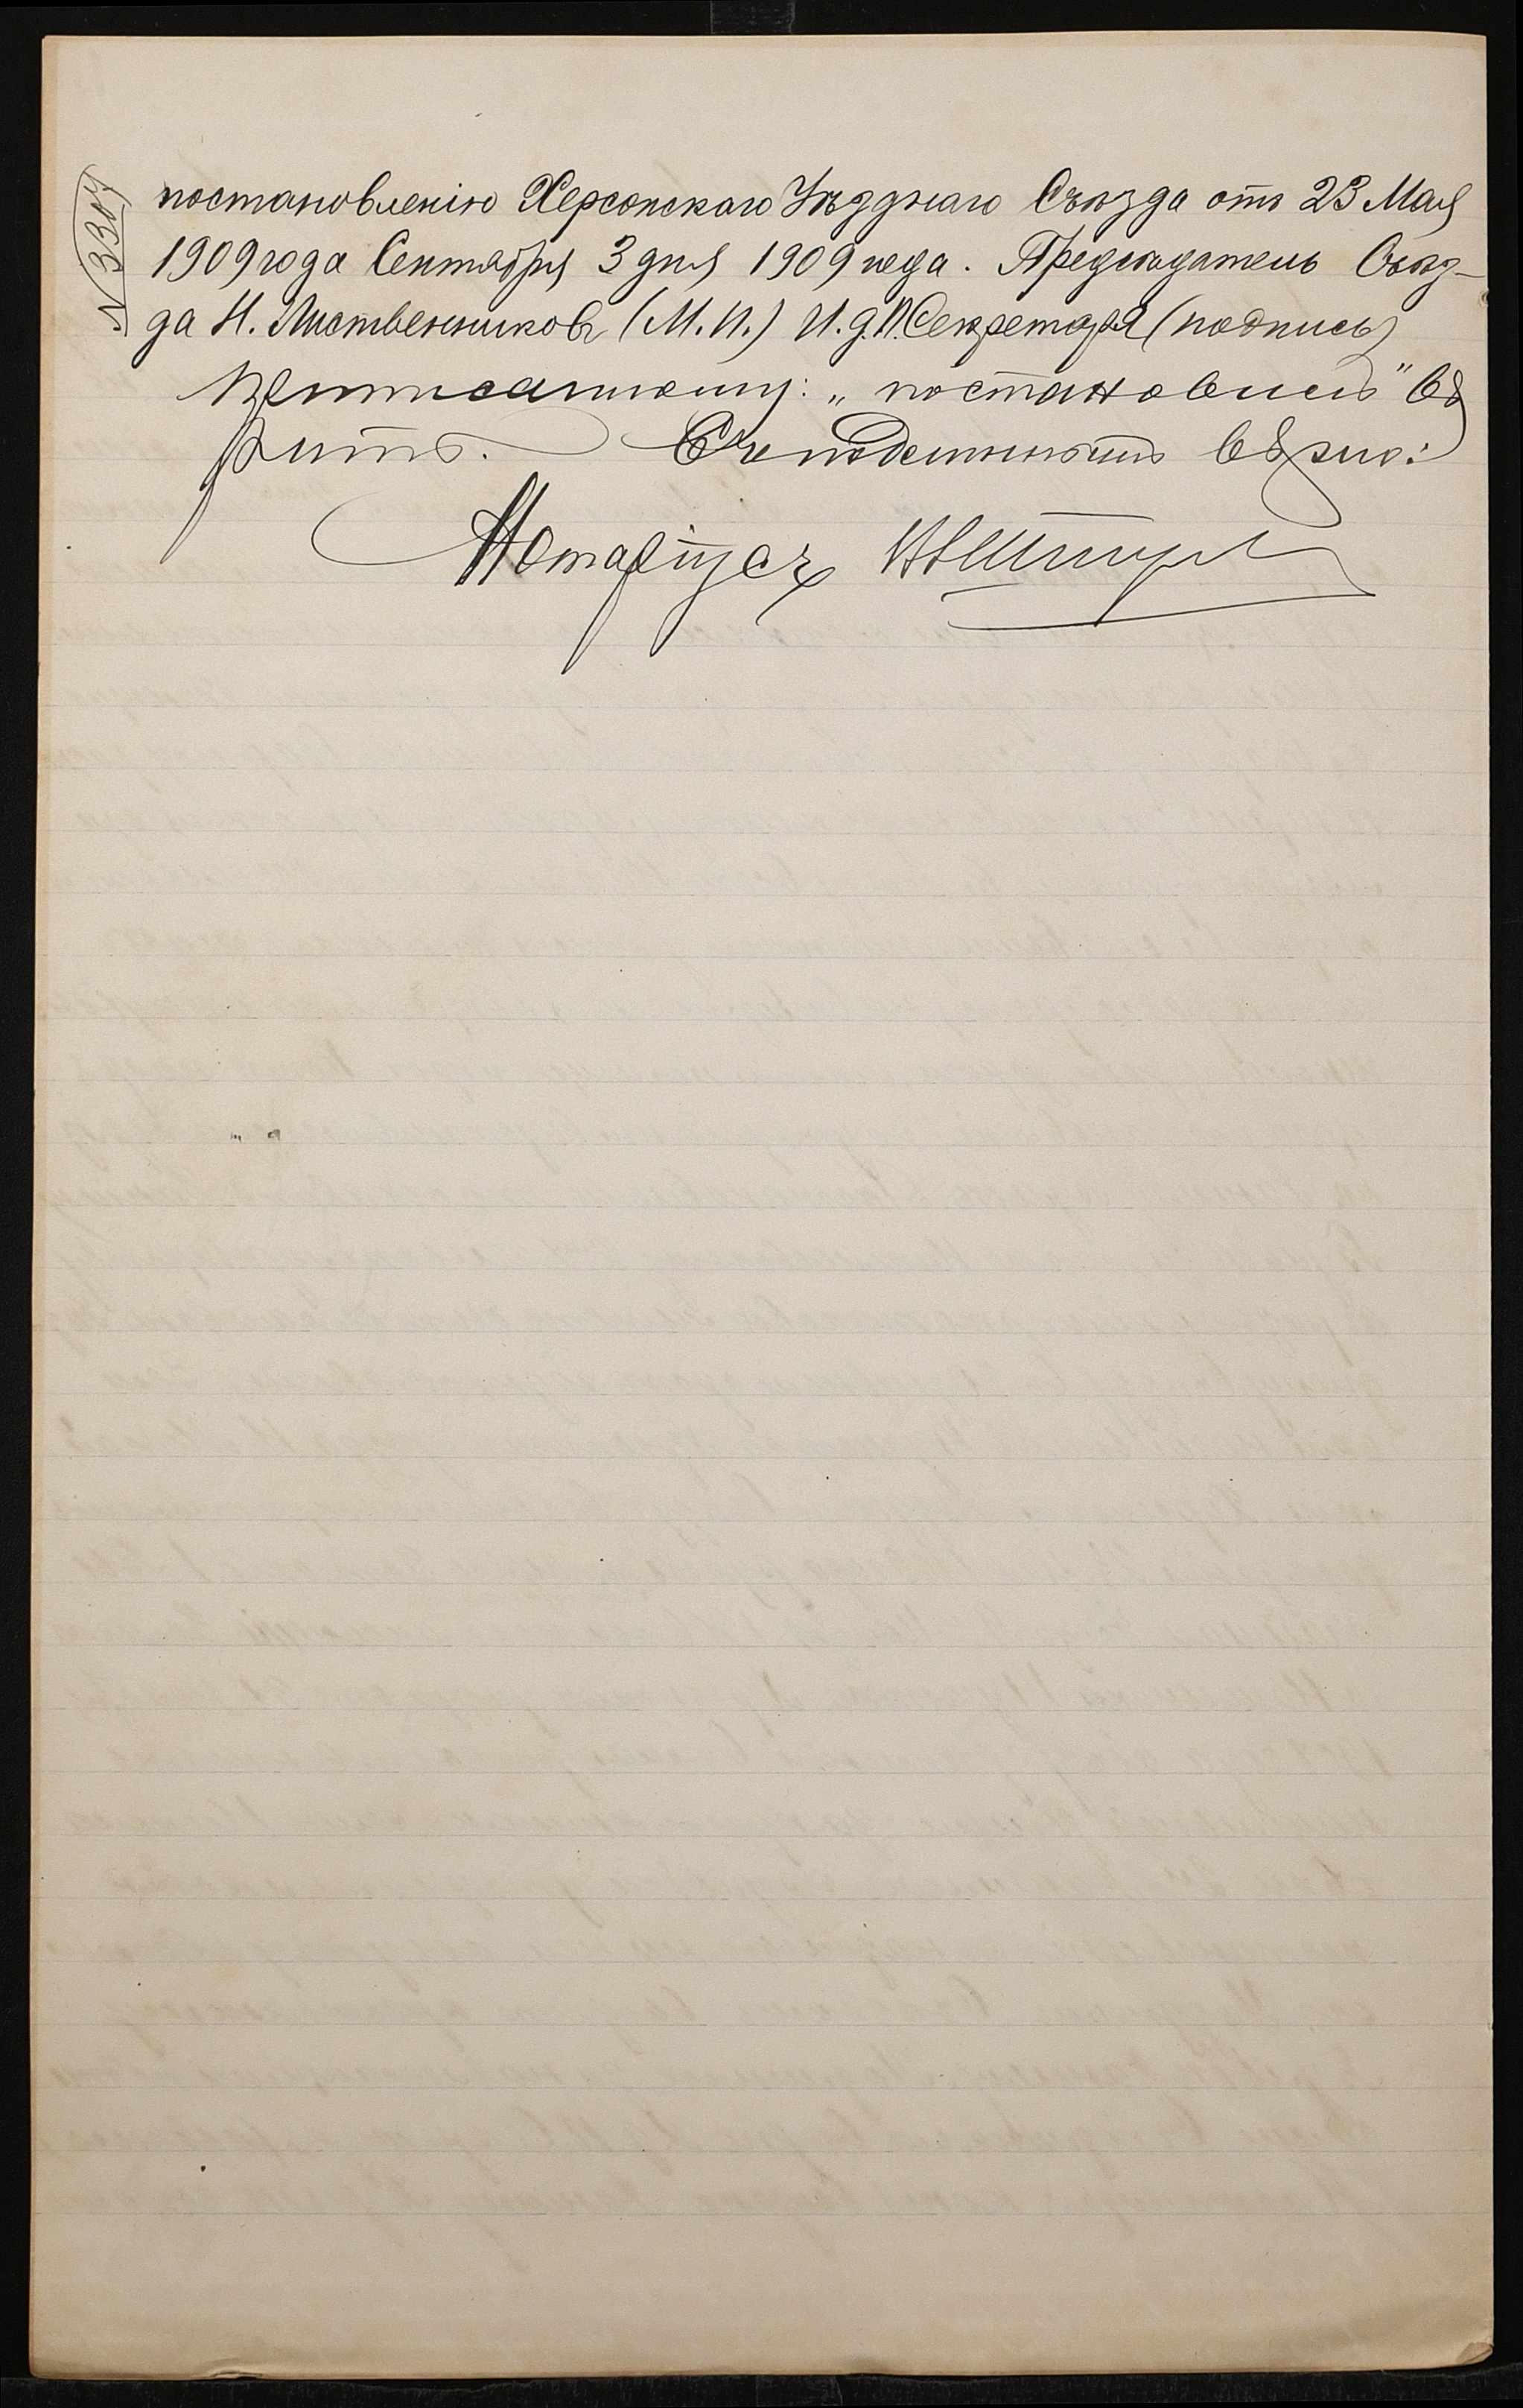 № 3307
постановленію Херсонскаго Уѣзднаго Съѣзда отъ 23 Мая
1909 года Сентября 3 дня 1909 года. Предсѣдатель Съѣз-
да Н. Лиственниковъ (М.П.) И.д. Секретаря (подпись)
писанному: „постановилъ" вѣ
рить. Съ подлиннымъ вѣрно:
Нотаріусъ